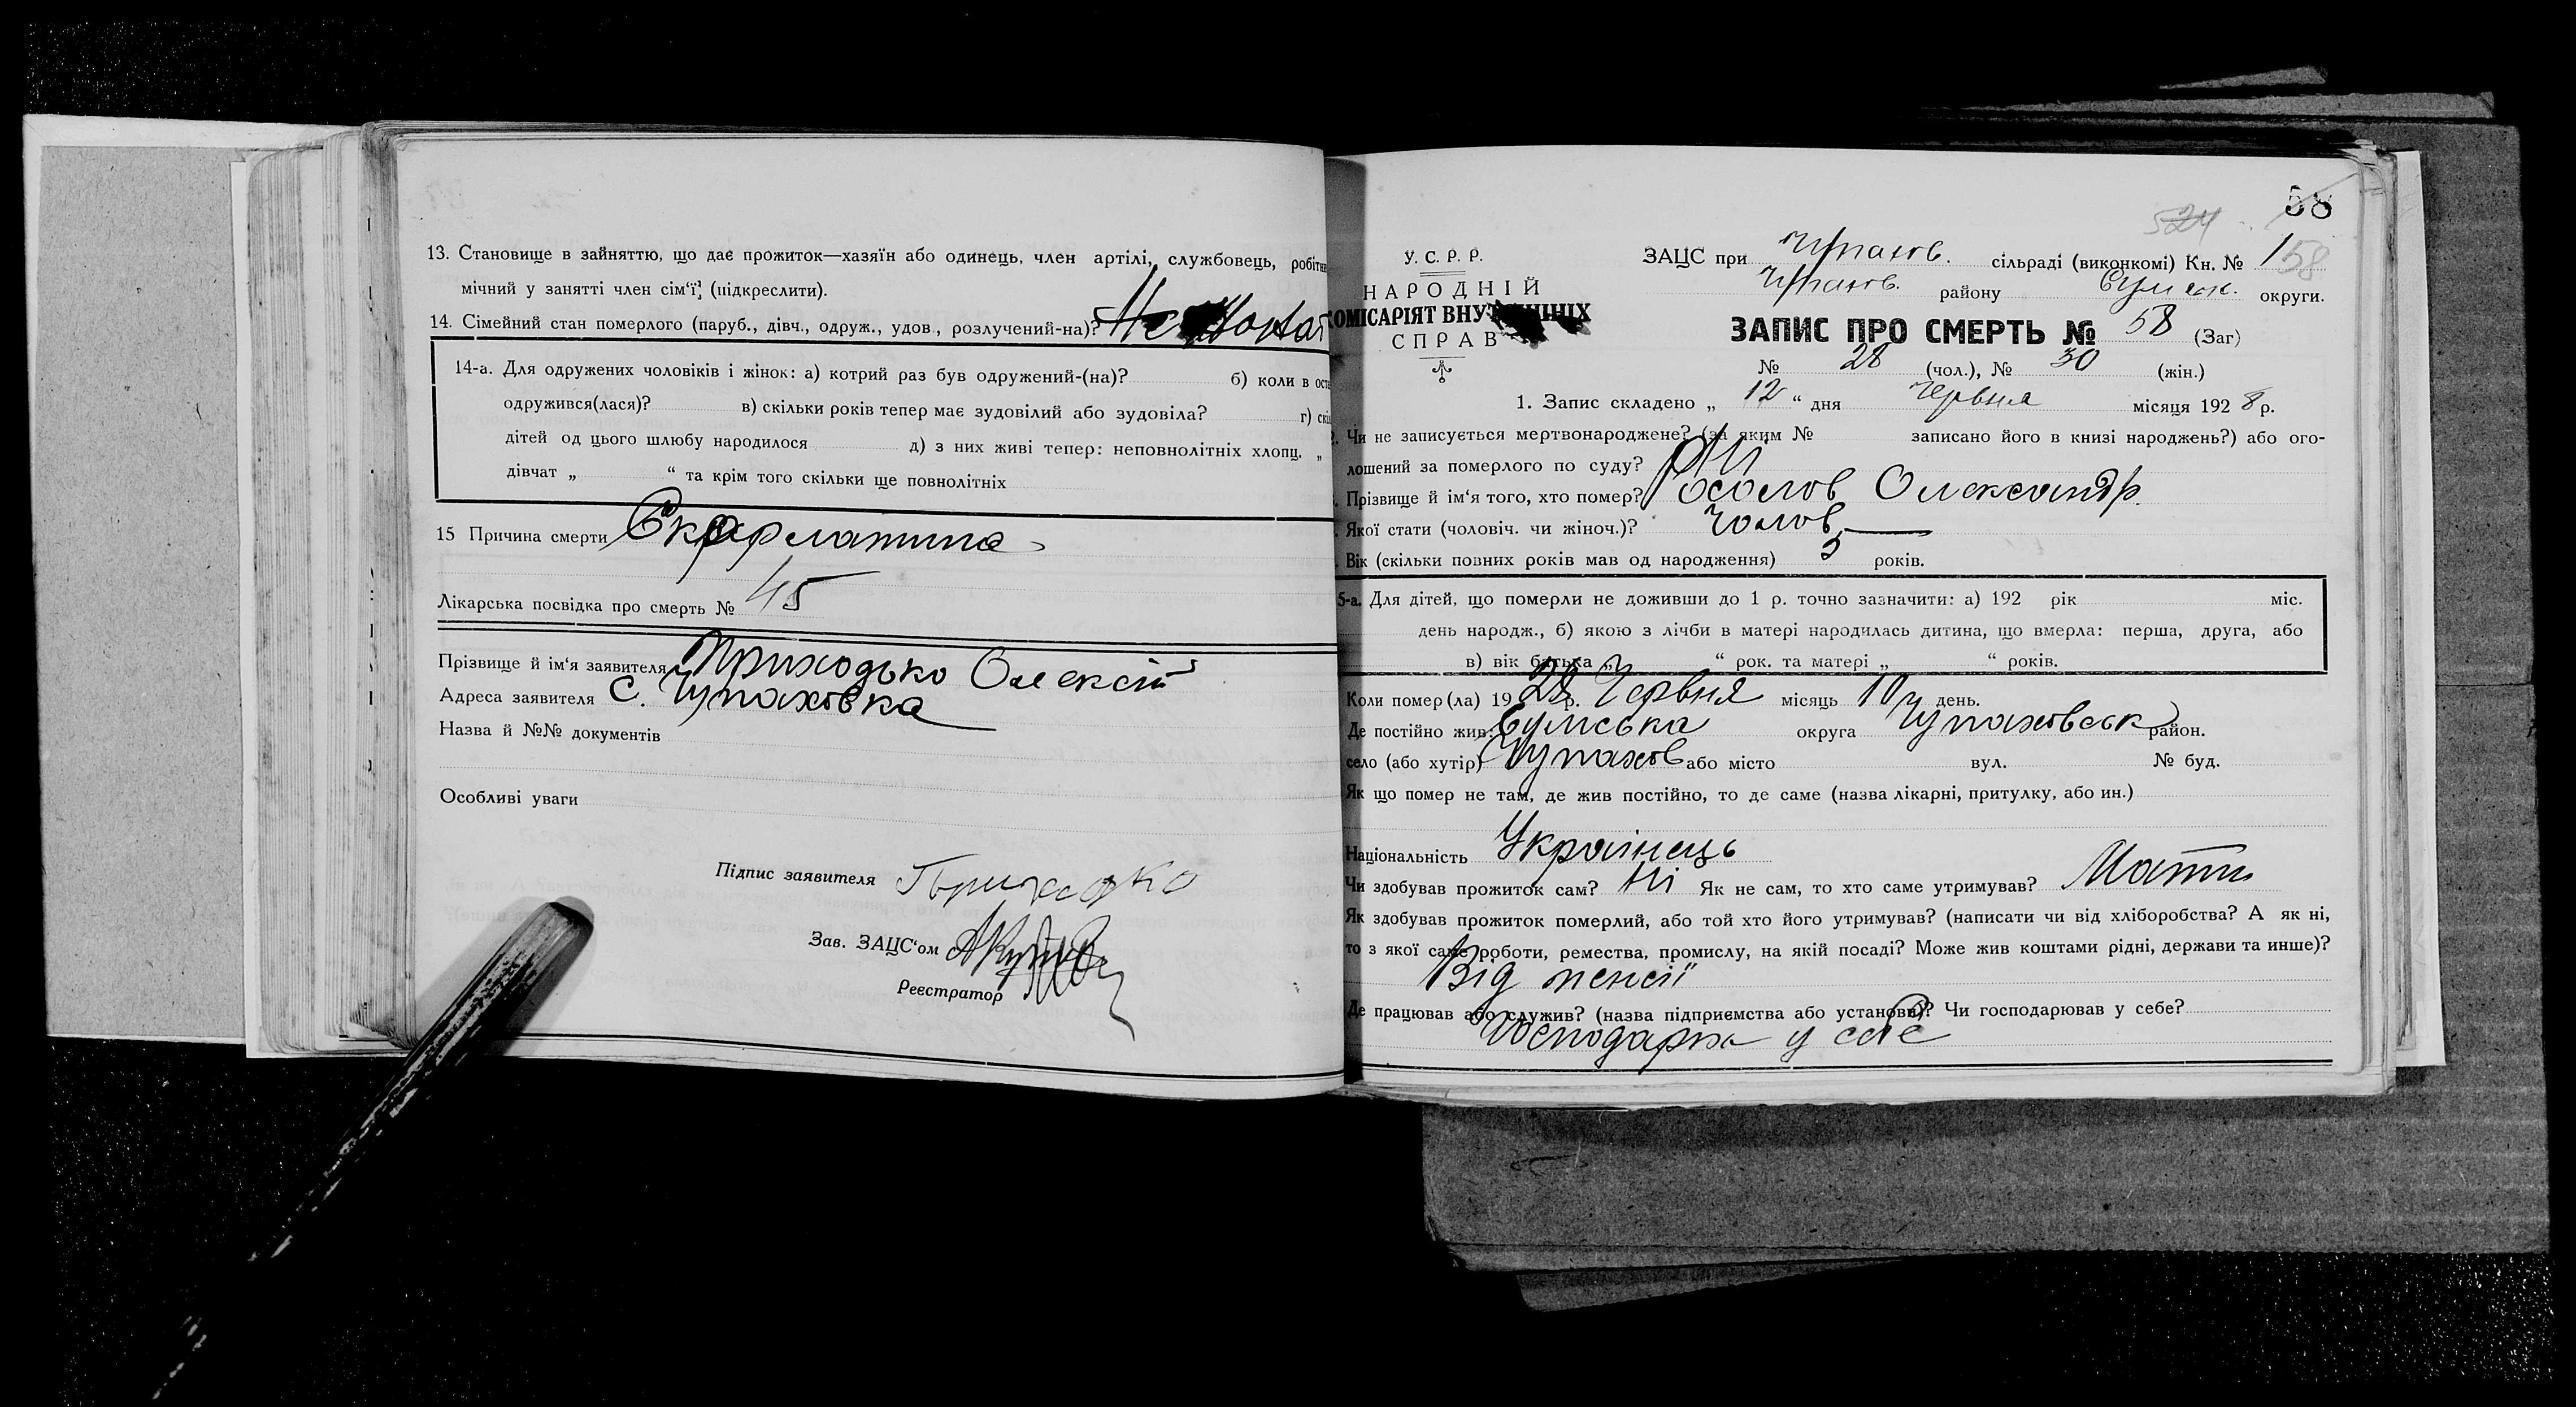 13. Становище в зайняттю, що дає прожиток—хазяїн або одинець, член артілі, службовець, робітни
мічний у занятті член сім'ї, (підкреслити).
14. Сімейний стан померлого (паруб., дівч., одруж., удов., розлучений-на)? Не
14-а. Для одружених чоловіків і жінок: а) котрий раз був одружений-(на)? б) коли в оста
одружився(лася)? в) скільки років тепер має зудовілий або зудовіла? г) скіл
дітей од цього шлюбу народилося д) з них живі тепер: неповнолітніх хлопц. „
дівчат „ “ та крім того скільки ще повнолітніх
15 Причина смерти Скарлатина
Лікарська посвідка про смерть № 45
Прізвище й ім'я заявителя Приходько Олексій
Адреса заявителя С. Чупаховка
Назва й №№ документів
Особливі уваги
Підпис заявителя Приходко
Зав. ЗАЦС'ом
Реєстратор
58
524
У. С. Р. Р.
НАРОДНІЙ
КОМІСАРІЯТ ВНУТРІШНІХ
СПРАВ
ЗАЦС при Чупахов. сільраді (виконкомі) Кн. № 1 58
Чупахов. району Сумськ. округи.
ЗАПИС ПРО СМЕРТЬ № 58 (Заг)
№ 28 (чол.), № 30 (жін.)
1. Запис складено „ 12 “ дня Червня місяця 1928 р.
2. Чи не записується мертвонароджене? (за яким № записано його в книзі народжень?) або ого-
лошений за померлого по суду? Ні
Прізвище й ім'я того, хто помер? Олександр
Якої стати (чоловіч. чи жіноч.)? Чолов.
Вік (скільки повних років мав од народження) 5 років.
5-а. Для дітей, що померли не доживши до 1 р. точно зазначити: а) 192 рік міс.
день народж., б) якою з лічби в матері народилась дитина, що вмерла: перша, друга, або
в) вік батька „ “ рок. та матері „ “ років.
Коли помер(ла) 1928 р. Червня місяць 10 день.
Де постійно жив: Сумська округа Чупаховськ район.
село (або хутір) Чупахов або місто вул. № буд.
Як що помер не там, де жив постійно, то де саме (назва лікарні, притулку, або ин.)
Національність Українець
Чи здобував прожиток сам? Ні Як не сам, то хто саме утримував? Мати
Як здобував прожиток померлий, або той хто його утримував? (написати чи від хліборобства? А як ні,
то з якої саме роботи, ремества, промислу, на якій посаді? Може жив коштами рідні, держави та инше)?
Від пенсії
Де працював або служив? (назва підприємства або установи)? Чи господарював у себе?
у себе